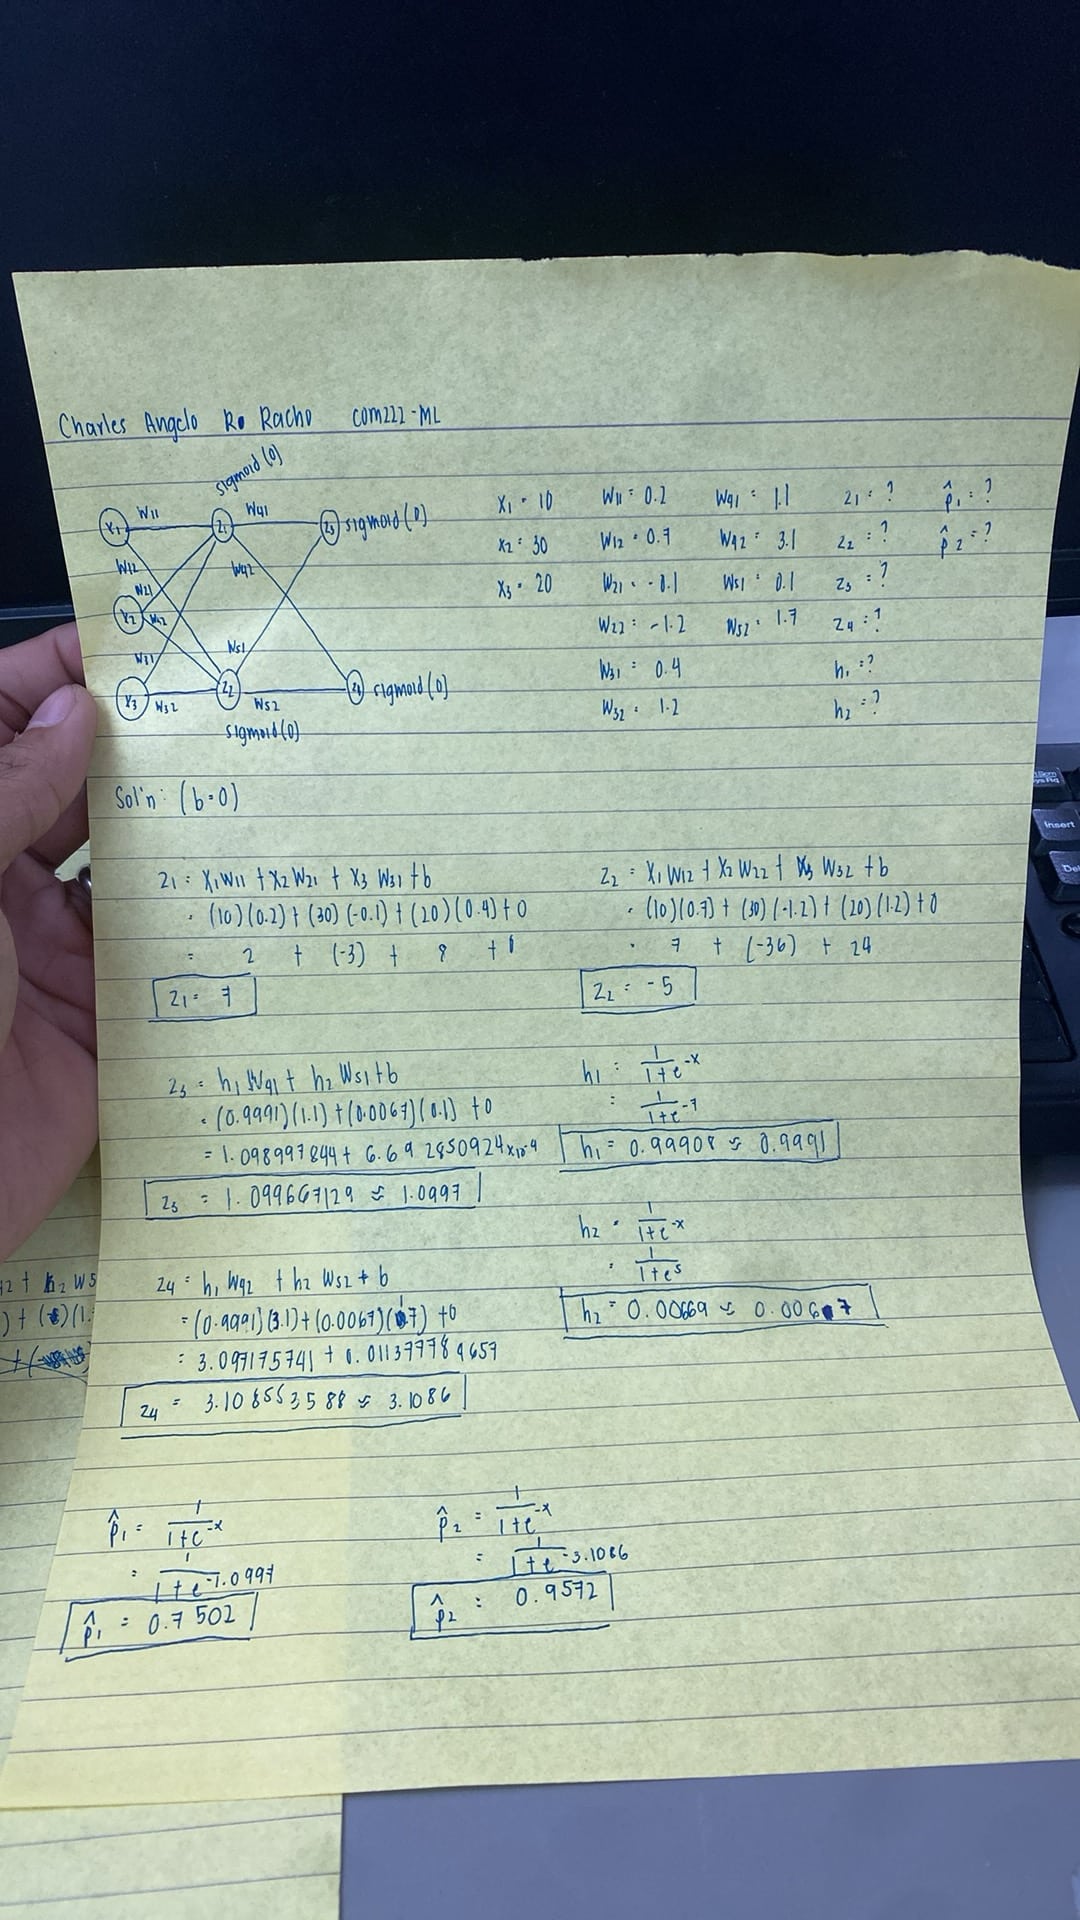 Charles Angelo Ro Racho COM222-ML
sigmoid (0)
X1 W11 Z1 W41 Z3 sigmoid (0)
W12 W42
W21
X2 W22
W31 W51
X3 W32 Z2 W52 Z4 sigmoid (0)
sigmoid (0)
X1 = 10 W11 = 0.2 W41 = 1.1 Z1 = ? p̂1 = ?
X2 = 30 W12 = 0.7 W42 = 3.1 Z2 = ? p̂2 = ?
X3 = 20 W21 = -0.1 W51 = 0.1 Z3 = ?
W22 = -1.2 W52 = 1.7 Z4 = ?
W31 = 0.4 h1 = ?
W32 = 1.2 h2 = ?
Sol'n: (b=0)
Z1 = X1W11 + X2W21 + X3 W31 + b
= (10)(0.2) + (30)(-0.1) + (20)(0.4) + 0
= 2 + (-3) + 8 + 0
Z1 = 7
Z2 = X1W12 + X2W22 + X3 W32 + b
= (10)(0.7) + (30)(-1.2) + (20)(1.2) + 0
= 7 + (-36) + 24
Z2 = -5
Z3 = h1 W41 + h2 W51 + b
= (0.9991)(1.1) + (0.0067)(0.1) + 0
= 1.098997844 + 6.692850924x10-4
Z3 = 1.099667129 ≈ 1.0997
h1 = 1/1+e-x
= 1/1+e-7
h1 = 0.99908 ≈ 0.9991
h2 = 1/1+e-x
= 1/1+e5
h2 = 0.00669 ≈ 0.0067
Z4 = h1 W42 + h2 W52 + b
= (0.9991)(3.1) + (0.0067)(1.7) + 0
= 3.097175741 + 0.01137784657
Z4 = 3.108553588 ≈ 3.1086
p̂1 = 1/1+e-x
= 1/1+e-1.0997
p̂1 = 0.7502
p̂2 = 1/1+e-x
= 1/1+e-3.1086
p̂2 = 0.9572
Insert